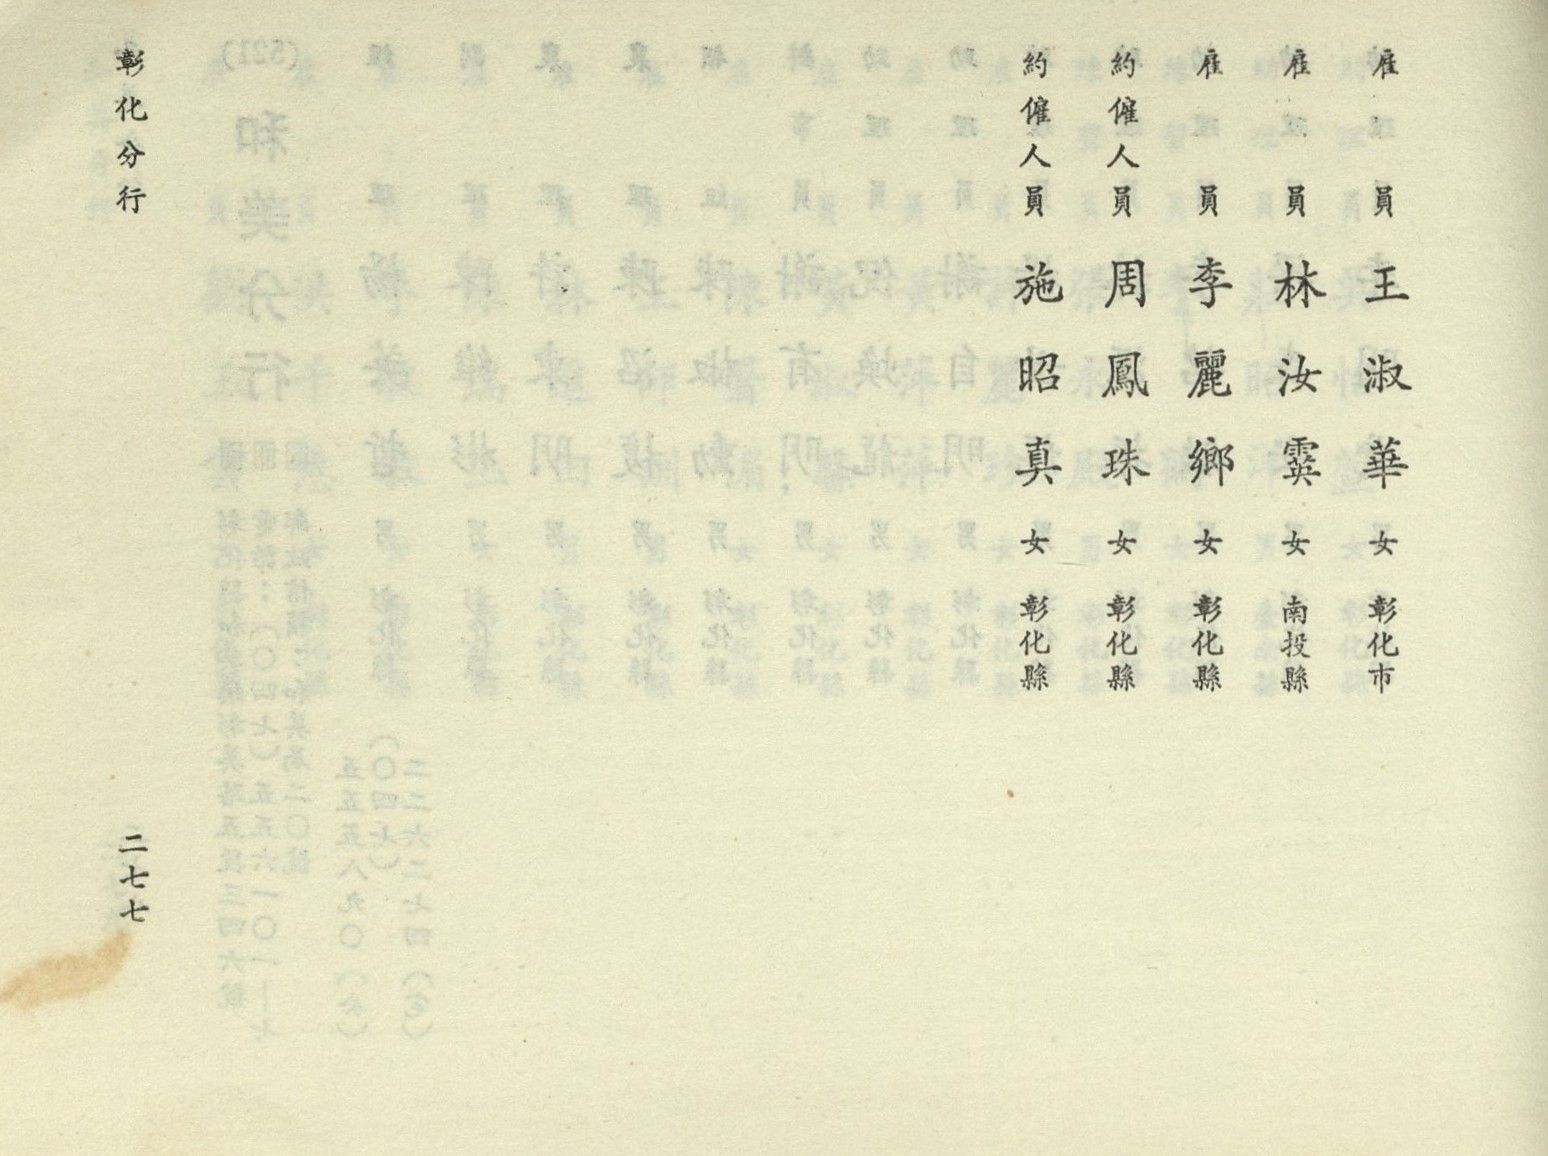 雇員王淑華女彰化市
雇員林汝霙女南投縣
雇員李麗鄉女彰化縣
約僱人員周鳳珠女彰化縣
約僱人員施昭真女彰化縣
彰化分行
二七七